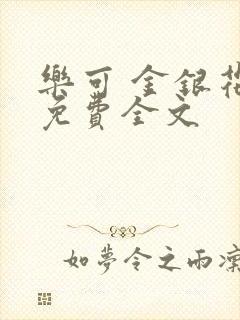 樂可 金銀花
免費全文
如夢令之雨凜